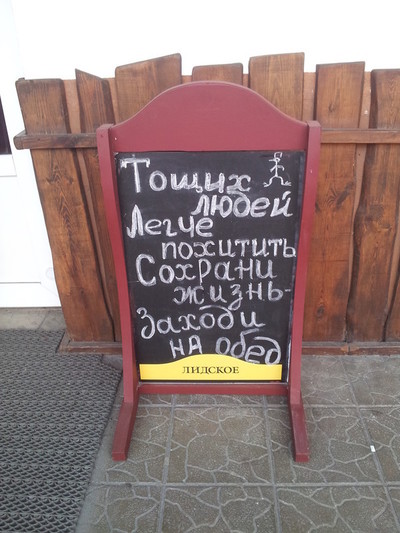 Тощих
людей
Легче
похитить
Сохрани
жизнь-
Заходи
на обед
ЛИДСКОЕ